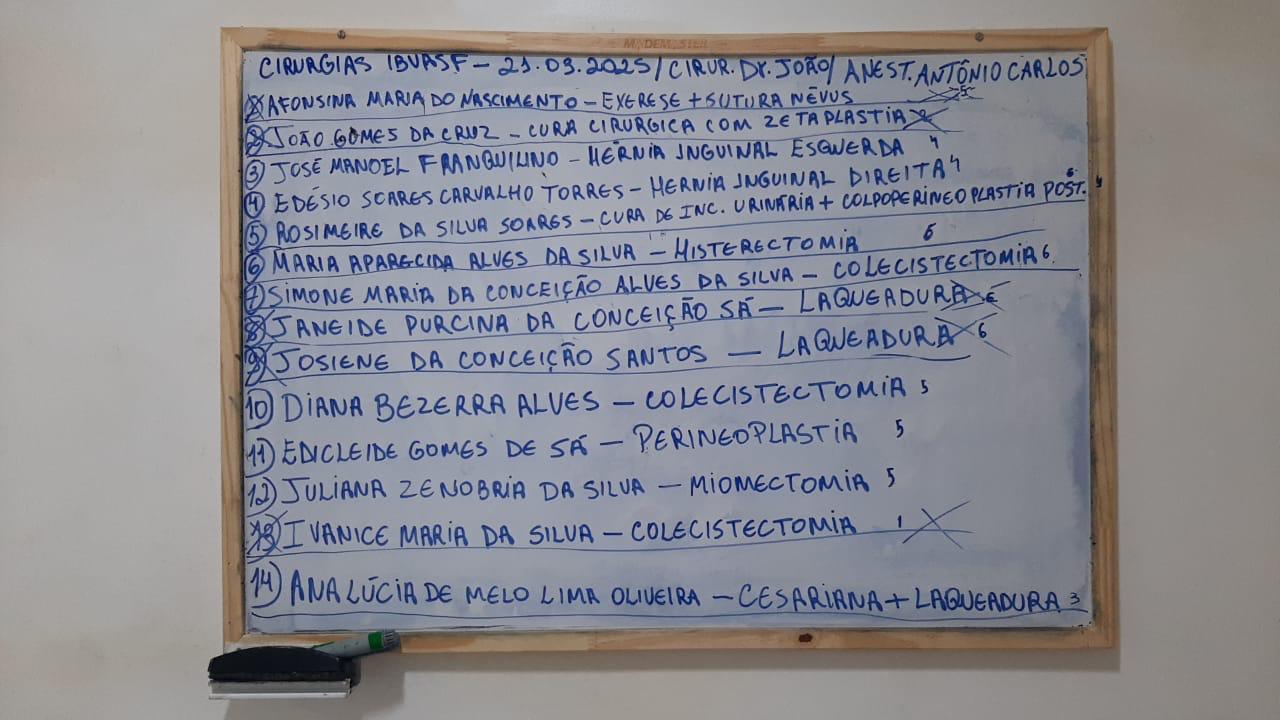 MADEMASTER
CIRURGIAS IBVASF - 21.03.2025 / CIRUR. Dr. JOÃO / ANEST. ANTÔNIO CARLOS
1 AFONSINA MARIA DO NASCIMENTO - EXERESE + SUTURA NÉVUS 5
2 JOÃO GOMES DA CRUZ - CURA CIRURGICA COM ZETAPLASTIA 2
3 JOSÉ MANOEL FRANQUILINO - HERNIA INGUINAL ESQUERDA 4
4 EDÉSIO SOARES CARVALHO TORRES - HERNIA INGUINAL DIREITA 4
5 ROSIMEIRE DA SILVA SOARES - CURA DE INC. URINÁRIA + COLPOPERINEOPLASTIA POST. 6
6 MARIA APARECIDA ALVES DA SILVA - HISTERECTOMIA 6
7 SIMONE MARIA DA CONCEIÇÃO ALVES DA SILVA - COLECISTECTOMIA 6
8 JANEIDE PURCINA DA CONCEIÇÃO SÁ - LAQUEADURA 6
9 JOSIENE DA CONCEIÇÃO SANTOS - LAQUEADURA 6
10 DIANA BEZERRA ALVES - COLECISTECTOMIA 5
11 EDICLEIDE GOMES DE SÁ - PERINEOPLASTIA 5
12 JULIANA ZENOBRIA DA SILVA - MIOMECTOMIA 5
13 IVANICE MARIA DA SILVA - COLECISTECTOMIA 1
14 ANA LÚCIA DE MELO LIMA OLIVEIRA - CESARIANA + LAQUEADURA 3